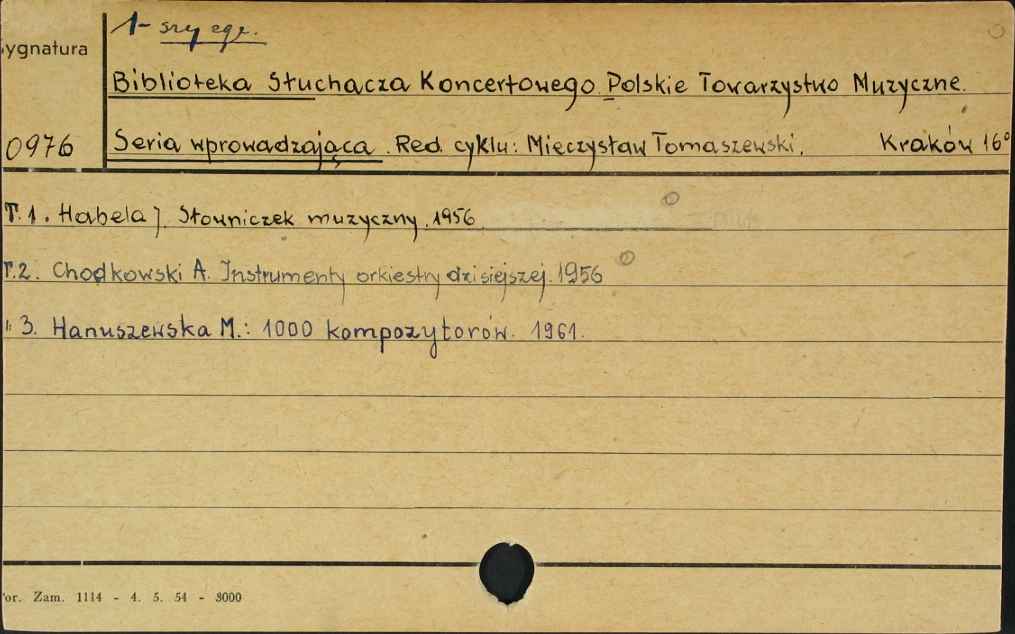 1-szy egz.
ygnatura
Biblioteka Słuchacza Koncertowego. Polskie Towarzystwo Muzyczne.
0976
Seria wprowadzająca. Red. cyklu: Mieczysław Tomaszewski. Kraków 16°
T.1. Habela J. Słowniczek muzyczny. 1956
T.2. Chodkowski A. Instrumenty orkiestry dzisiejszej. 1956
" 3. Hanuszewska M.: 1000 kompozytorów. 1961.
or. Zam. 1114 - 4. 5. 54 - 3000